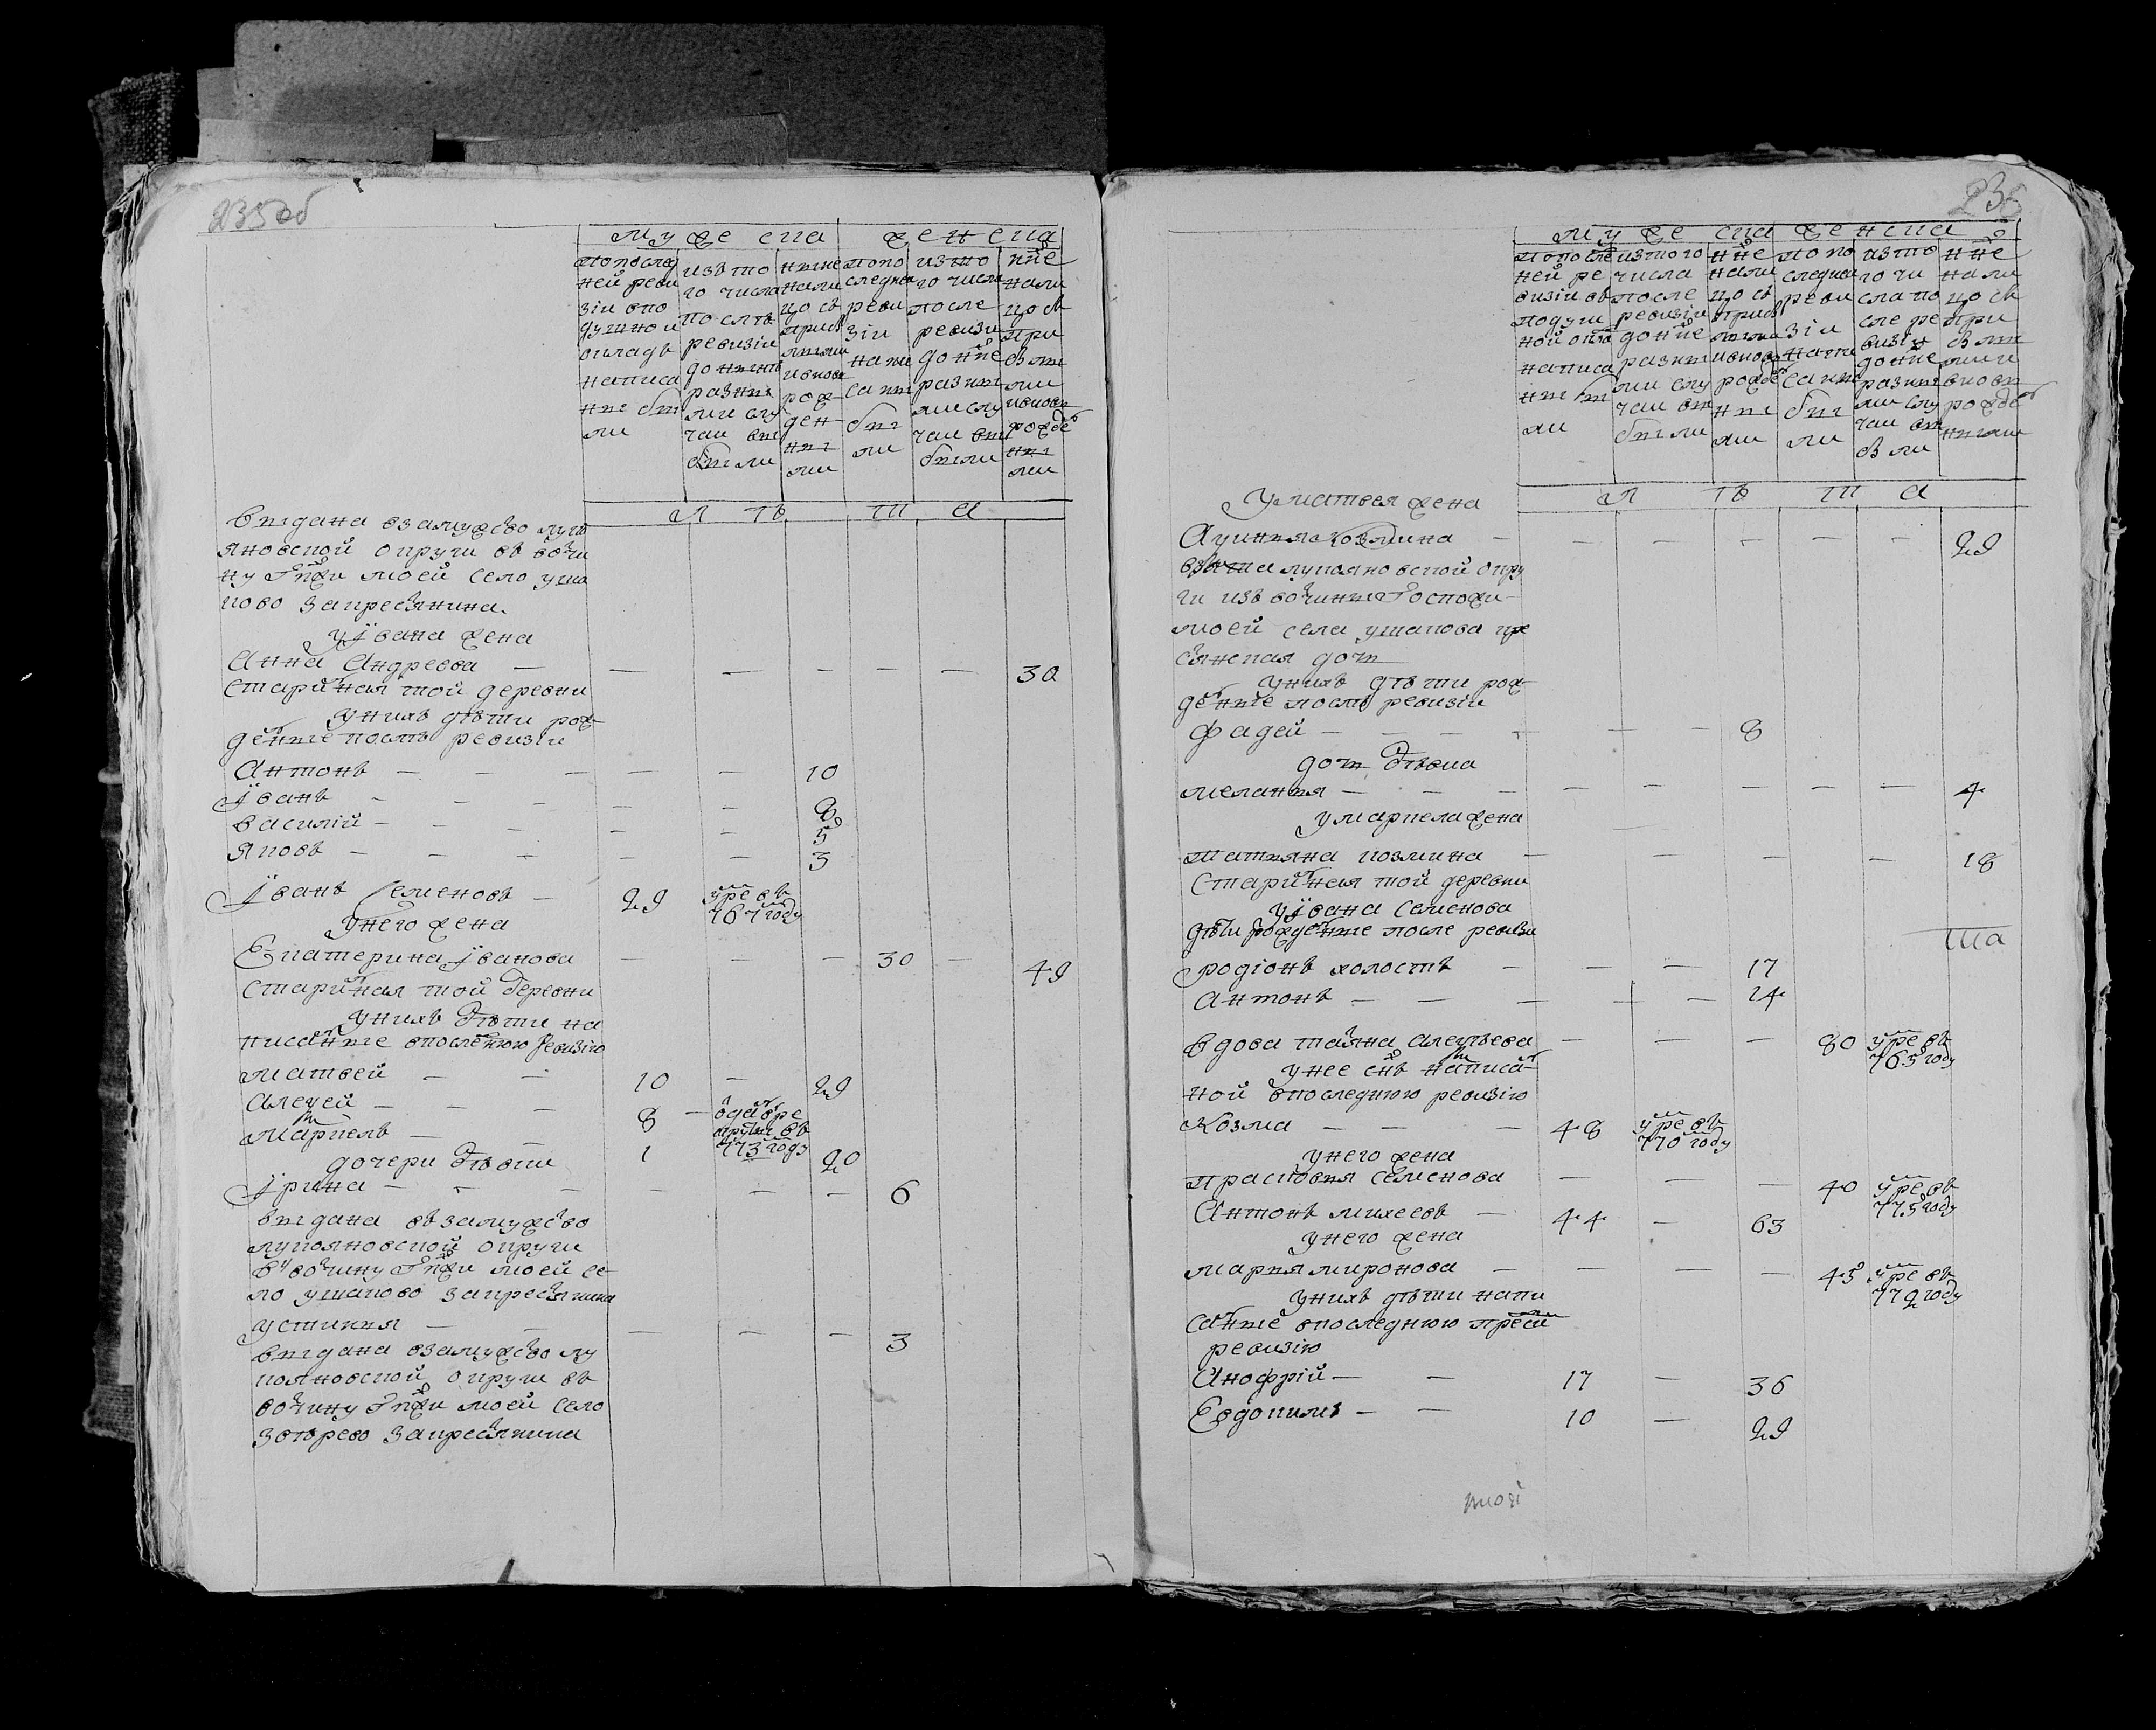 235 об
муже ска женска
попослед
ней реви
зіи опо
душнои
окладъ
написа
ны бы
ли
изъ то
го числа
послѣ
ревизіи
до ныне
разны
ми слу
чаи вы
были
ныне
нали
цо съ
приб
ылыми
ивновь
рож
ден
ны
ми
попо
следнеи
реви
зіи
напи
саны
бы
ли
изъ то
го числа
после
ревизи
до нн̃е
разны
ми слу
чаи вы
были
нн̃е
нали
цо съ
при
былы
ми
ивновь
рожде
ны
ми
л ѣ т а
выдана взамужство луко
яновской округи въ вочи
ну Гпжи моей село уша
ково закресянина
у Iвана жена
Анна Андреева — 30
старинная той деревни
у нихъ дѣти рож
деные послѣ ревизіи
Антонъ — 10
Iванъ — 8
василій — 5
яковъ — 3
Iванъ Семеновъ — 29 умре въ
767 году
у него жена
Екатерина Iванова — 30 — 49
старинная той деревни
у нихъ дѣти на
писаные впоследнюю ревизію
матвей — 10 — 29
Алексей — 8 — одан вре
круты въ
773 году
маркелъ — 1 20
дочери дѣвки
Iрина — 6
выдана въ замужство
лукояновской округи
въ вочину Гпжи моей се
ло ушаково закресянина
устинья — 3
выдана взамужство лу
кояновской округи въ
вочину Гпжи моей село
зверево закресянина
236
муже ска женска
попосле
ней ре
визіи въ
подуш
ной окла
написа
ны бы
ли
изтого
числа
после
ревизіи
до нн̃е
разны
ми слу
чаи вы
были
нн̃е
нали
цо съ
приб
ылыми
ивновь
рожде
ны
ми
попо
следнеи
реви
зіи
напи
саны
бы
ли
изто
го чи
сла по
сле ре
визіи
до нн̃е
разны
ми слу
чаи вы
были
нн̃е
нали
цо съ
при
былы
ми и
вновь
рожде
ными
л ѣ т а
у матвея жена
Акулина козмина — 29
взята лукояновской окру
ги изъ вочины Госпожи
моей села ушакова кре
сянская дочь
у нихъ дѣти рож
деные послѣ ревизіи
фадей — 8
дочь дѣвка
меланья — 4
у маркела жена
татьяна козмина — 18
старинная той деревни
у Iвана Семенова
дѣти рожденые после ревизи
родіонъ холостъ — 17
антонъ — 14
вдова таяна алексеева — 80 умре въ
765 году
у нее снъ написа
ной впоследнюю ревизію
Козма — 48 умре въ
770 году
у него жена
прасковья Семенова — 40 умре въ
775 году
Антонъ михеевъ — 44 — 63
у него жена
марья миронова — 45 умре въ
779 году
у нихъ дѣти напи
саные впоследнюю пред
ревизію
Анофрій — 17 — 36
Евдокимъ — 10 — 29